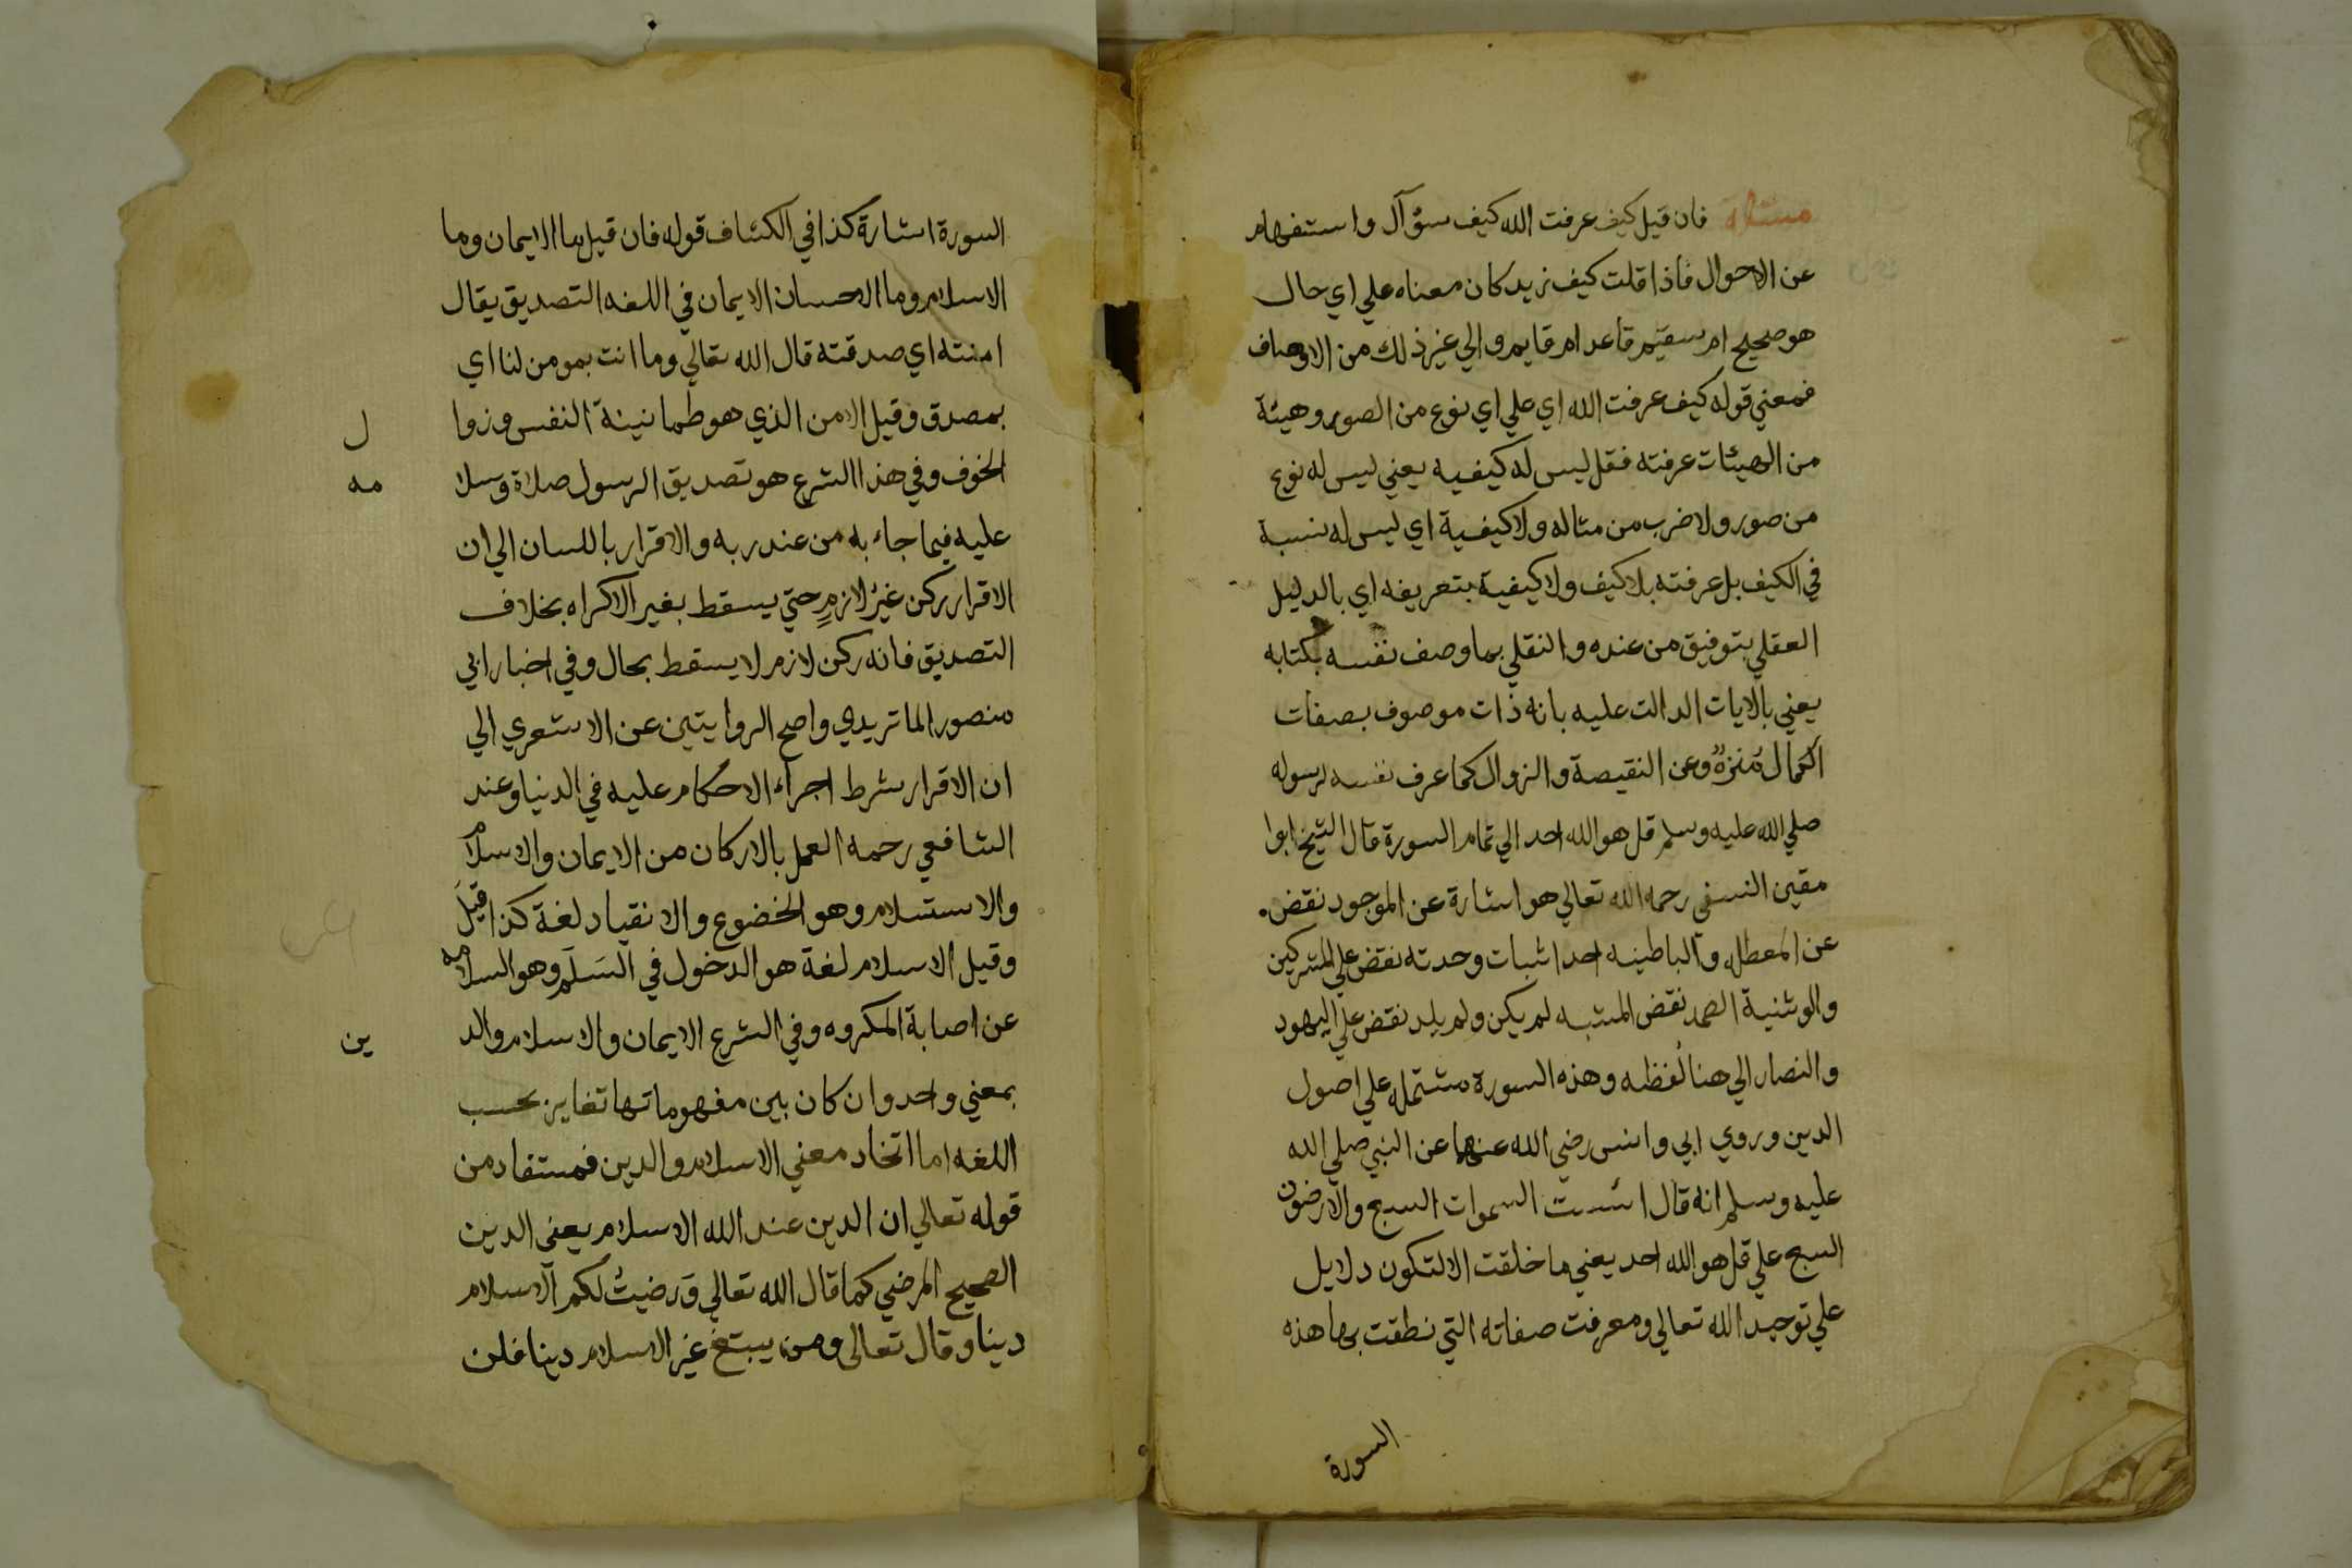 مسئلة فان قيل كيف عرفت الله كيف سؤآل واستفهام
عن الاحوال فاذا قلت كيف زيد كان معناه علي اي حال
هو صحيح ام سقيم قاعد ام قايم والي غير ذلك من الاوصاف
فمعني قوله كيف عرفت الله اي علي اي نوع من الصور وهيئة
من الهيئات عرفته فقل ليس له كيفيه يعني ليس له نوع
من صور ولا ضرب من مثاله ولا كيفية اي ليس له نسبة
في الكيف بل عرفته بلا كيف ولا كيفية بتعريفه اي بالدليل
العقلي بتوفيق من عنده والنقلي بما وصف نفسه بكتابه
يعني بالايات الدالت عليه بانه ذات موصوف بصفات
الكمال منزه وعن النقيصة والزوال كما عرف نفسه لرسوله
صلي الله عليه وسلم قل هو الله احد الي تمام السورة قال الشيخ ابوا
مقين النسفي رحمه الله تعالي هو اشارة عن الموجود نقض
عن المعطله والباطينه احد اثبات وحدته نقض علي المشركين
والوثنية الصمد نقض المشبه لم يكن ولم يلد نقض علي اليهود
والنصار الي هنا لفظه وهذه السورة مشتمله علي اصول
الدين وروي ابي وانس رضي الله عنهما عن النبي صلي الله
عليه وسلم انه قال اسست السموات السبع والارضون
السبع علي قل هو الله احد يعني ما خلقت الا لتكون دلايل
علي توحيد الله تعالي ومعرفت صفاته التي نطقت بها هذه
السورة
السورة اشارة كذا في الكشاف قوله فان قيل ما الايمان وما
الاسلام وما الاحسان الايمان في اللغه التصديق يقال
امنته اي صدقته قال الله تعالي وما انت بمومن لنا اي
بمصدق وقيل الامن الذي هو طمانينة النفس وزوا ل
الخوف وفي هذا الشرع هو تصديق الرسول صلاة وسلا مه
عليه فيما جاء به من عند ربه والاقرار باللسان الي ان
الاقرار ركن غير لازم حتي يسقط بغير الاكراه بخلاف
التصديق فانه ركن لازم لا يسقط بحال وفي اخبار ابي
منصور الماتريدي واصح الروايتين عن الاشعري الي
ان الاقرار شرط اجراء الاحكام عليه في الدنيا وعند
الشافعي رحمه العمل بالاركان من الايمان والاسلام
والاستسلام وهو الخضوع والانقياد لغة كذا قيل
وقيل الاسلام لغة هو الدخول في السلم وهو السلامه
عن اصابة المكروه وفي الشرع الايمان والاسلام والد ين
بمعني واحد وان كان بين مفهوماتها تغاير بحسب
اللغه اما اتخاد معني الاسلام والدين فمستفاد من
قوله تعالي ان الدين عند الله الاسلام يعني الدين
الصحيح المرضي كما قال الله تعالي ورضيت لكم الاسلام
دينا وقال تعالى ومن يبتغ غير الاسلام دينا فلن